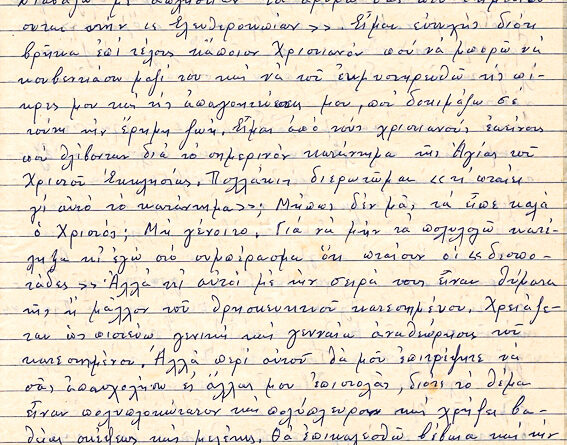 διαβάζω μὲ ἀπληστίαν τὰ ἄρθρα σας ποὺ δημοσιεύ-
οντας στὴν «Ἐλευθεροτυπίαν». Εἶμαι εὐτυχὴς διότι
βρῆκα ἐπὶ τέλους κάποιον Χριστιανὸν ποὺ νὰ μπορῶ νὰ
κουβεντιάσω μαζί του καὶ νὰ τοῦ ἐκμυστηρευθῶ τὶς πί-
κρες μου καὶ τὶς ἀπαγοητεύσεις μου, ποὺ δοκιμάζω σὲ
τούτη τὴν ἔρημη ζωή. Εἶμαι ἀπὸ τοὺς χριστιανοὺς ἐκείνους
ποὺ θλίβονται διὰ τὸ σημερινὸν κατάντημα τῆς Ἁγίας τοῦ
Χριστοῦ Ἐκκλησίας. Πολλάκις διερωτῶμαι «τί πταίει
γι αὐτὸ τὸ κατάντημα»; Μήπως δὲν μᾶς τὰ εἶπε καλὰ
ὁ Χριστός; Μὴ γένοιτο. Γιὰ νὰ μὴν τὰ πολυλογῶ κατέ-
ληξα κι ἐγὼ στὸ συμπέρασμα ὅτι πταίουν οἱ «δεσπο-
τάδες». Ἀλλὰ κι αὐτοὶ μὲ τὴν σειρά τους εἶναι θύματα
τῆς ἢ μᾶλλον τοῦ θρησκευτικοῦ κατεστημένου. Χρειάζε-
ται ὡς πιστεύω γενικὴ καὶ γενναία ἀναθεώρησις τοῦ
κατεστημένου. Ἀλλὰ περὶ αὐτοῦ θὰ μοῦ ἐπιτρέψητε νὰ
σᾶς ἀπασχολήσω εἰς ἄλλας μου ἐπιστολάς, διότι τὸ θέμα
εἶναι πολυπλοκώτατον καὶ πολύπλευρον καὶ χρήζει βα-
θείας σκέψεως καὶ μελέτης. Θὰ ἐπικαλεσθῶ βέβαια καὶ τὴν